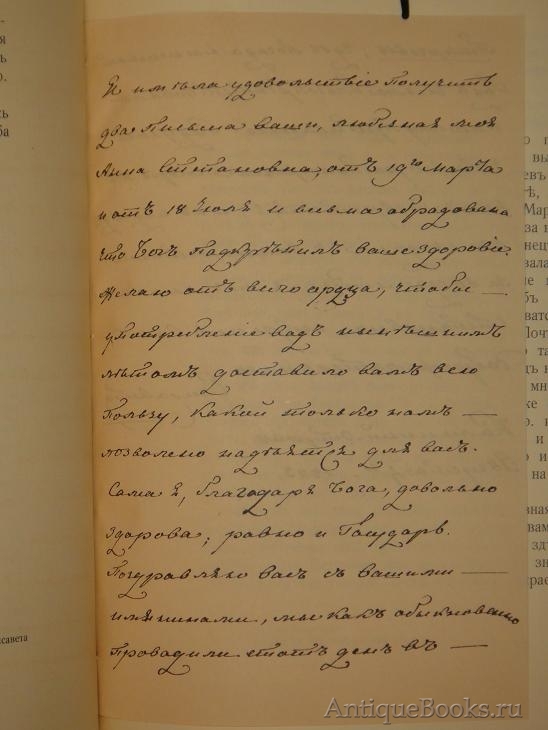 Я имѣла удовольствіе получить
два письма ваши, любезная моя
Анна Степановна, отъ 19го Марта
и отъ 18 Іюля и весьма обрадована
что Богъ подкрѣпилъ ваше здоровіе.
Желаю отъ всего сердца, чтобы —
употребленіе водъ нынѣшнимъ
лѣтомъ доставило вамъ всю
пользу, какой только намъ —
позволено надѣятся для васъ.
Сама я, благодаря Бога, довольно
здорова; равно и Государь.
Поздравляю васъ съ вашими —
имянинами, мы какъ обыкновенно
проводили етотъ день въ —
исавета
AntiqueBooks.ru